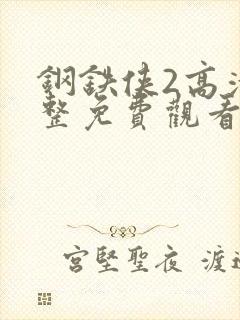 鋼鉄俠2高
整免費觀看
宮堅聖夜 渡